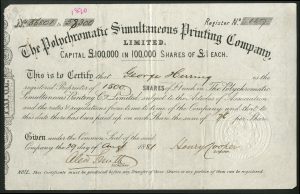 Register No
The Polychromatic Simultaneous Printing Company,
LIMITED.
CAPITAL £100,000 IN 100,000 SHARES OF £1 EACH.
This is to Certify that George Herring is the
registered Proprietor of 1500 SHARES of £1 each in The Polychromatic
Simultaneous Printing Co Limited, subject to the Articles of Association
and the rules & regulations from time to time of the Company and that
this date there has been paid up in respect of each such Share the sum of per Share
Given under the Common Seal of the said
Company the 29 day of Aug 1881
Henry Cooper
NOTE. This Certificate must be produced before any Transfer of these Shares or any portion of them can be registered.